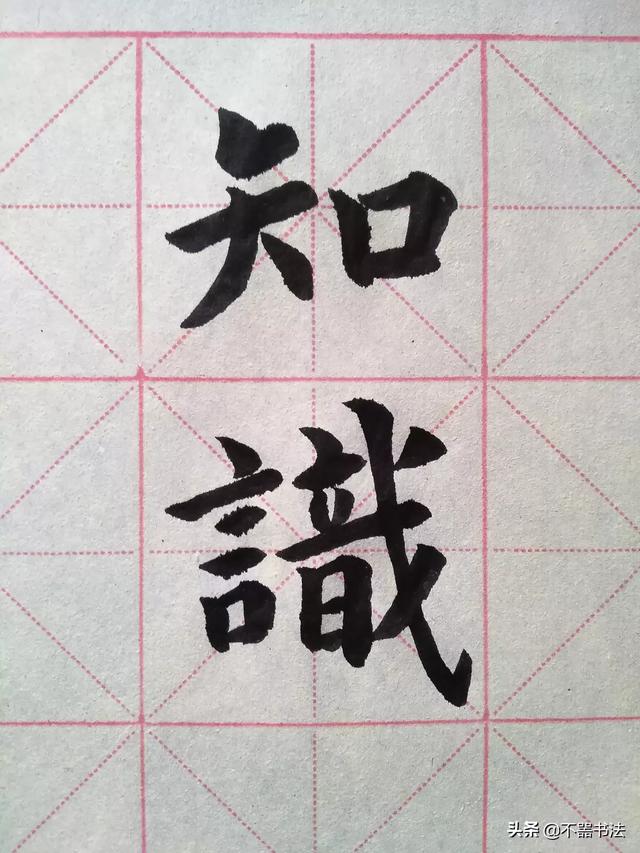 知
識
头条 @不器书法